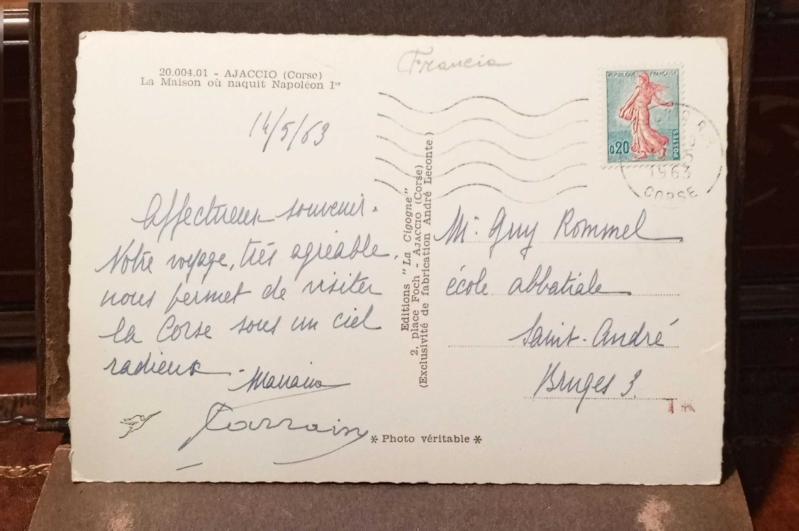 20.004.01 - AJACCIO (Corse)
La Maison où naquit Napoléon Ier
Francia
14/5/63
Affectueux souvenir.
Notre voyage, très agréable,
nous permet de visiter
la Corse sous un ciel
radieux.
Editions "La Cigogne"
2, place Foch - AJACCIO (Corse)
(Exclusivité de fabrication André Leconte)
REPUBLIQUE FRANÇAISE
0,20
POSTES
1963
CORSE
Mr Guy Rommel
école abbatiale
Saint-André
Bruges 3.
* Photo véritable *